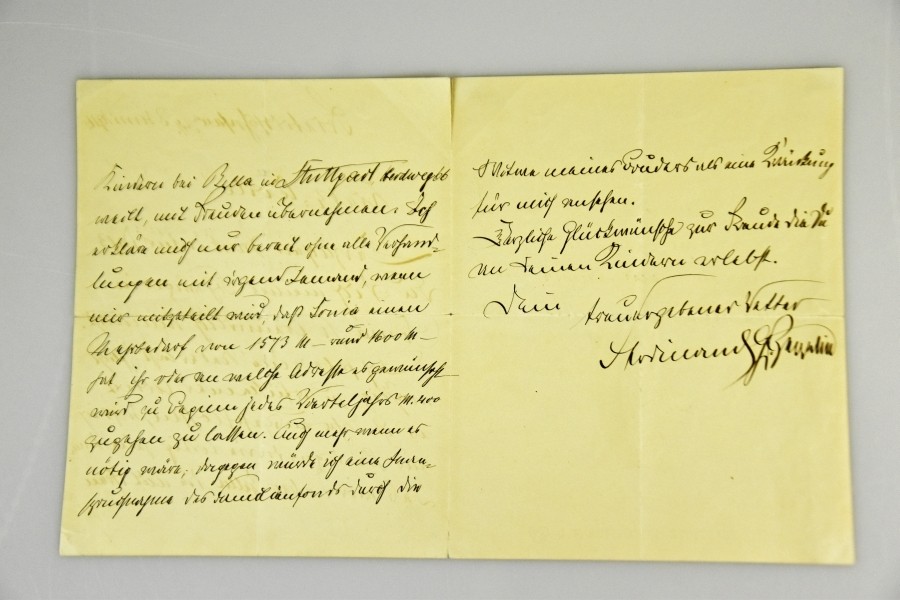 Kindern bei Bella in Stuttgart
weilt, mit Freuden übernehmen. Ich
erkläre mich nur bereit ohne alle Verhand-
lungen mit irgend Jemand, wenn
mir mitgeteilt wird, daß Sonia einen
Mehrbedarf von 1573 M – rund 1600 M –
hat ihr oder an welche Adresse es gewünscht
wird zu Beginn jedes Vierteljahrs M. 400
zugehen zu lassen. Auch mehr wenn es
nötig wäre; dagegen würde ich eine Inan-
spruchnahme des Familienfonds durch die
Witwe meines Bruders als eine Kränkung
für mich ansehen.
Herzliche Glückwünsche zur Freude die Du
an Deinen Kindern erlebst.
Dein treuergebener Vetter
Ferdinand Gf Zeppelin